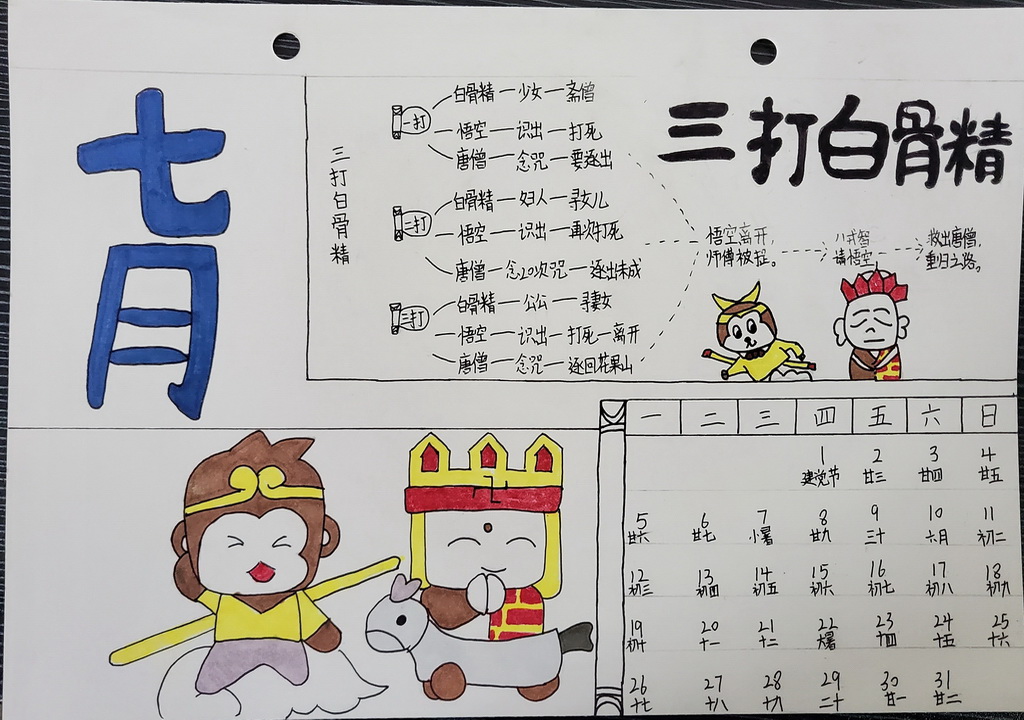 七月
三打白骨精
三打白骨精
一打
白骨精—少女—斋僧
悟空—识出—打死
唐僧—念咒—要逐出
二打
白骨精—妇人—寻女儿
悟空—识出—再次打死
唐僧—念20次咒—逐出未成
三打
白骨精—公公—寻妻女
悟空—识出—打死—离开
唐僧—念咒—逐回花果山
悟空离开，
师傅被捉。
八戒智
请悟空
救出唐僧，
重归之路。
一 二 三 四 五 六 日
1 2 3 4
建党节 廿三 廿四 廿五
5 6 7 8 9 10 11
廿六 廿七 小暑 廿九 三十 六月 初二
12 13 14 15 16 17 18
初三 初四 初五 初六 初七 初八 初九
19 20 21 22 23 24 25
初十 十一 十二 大暑 十四 十五 十六
26 27 28 29 30 31
十七 十八 十九 二十 廿一 廿二